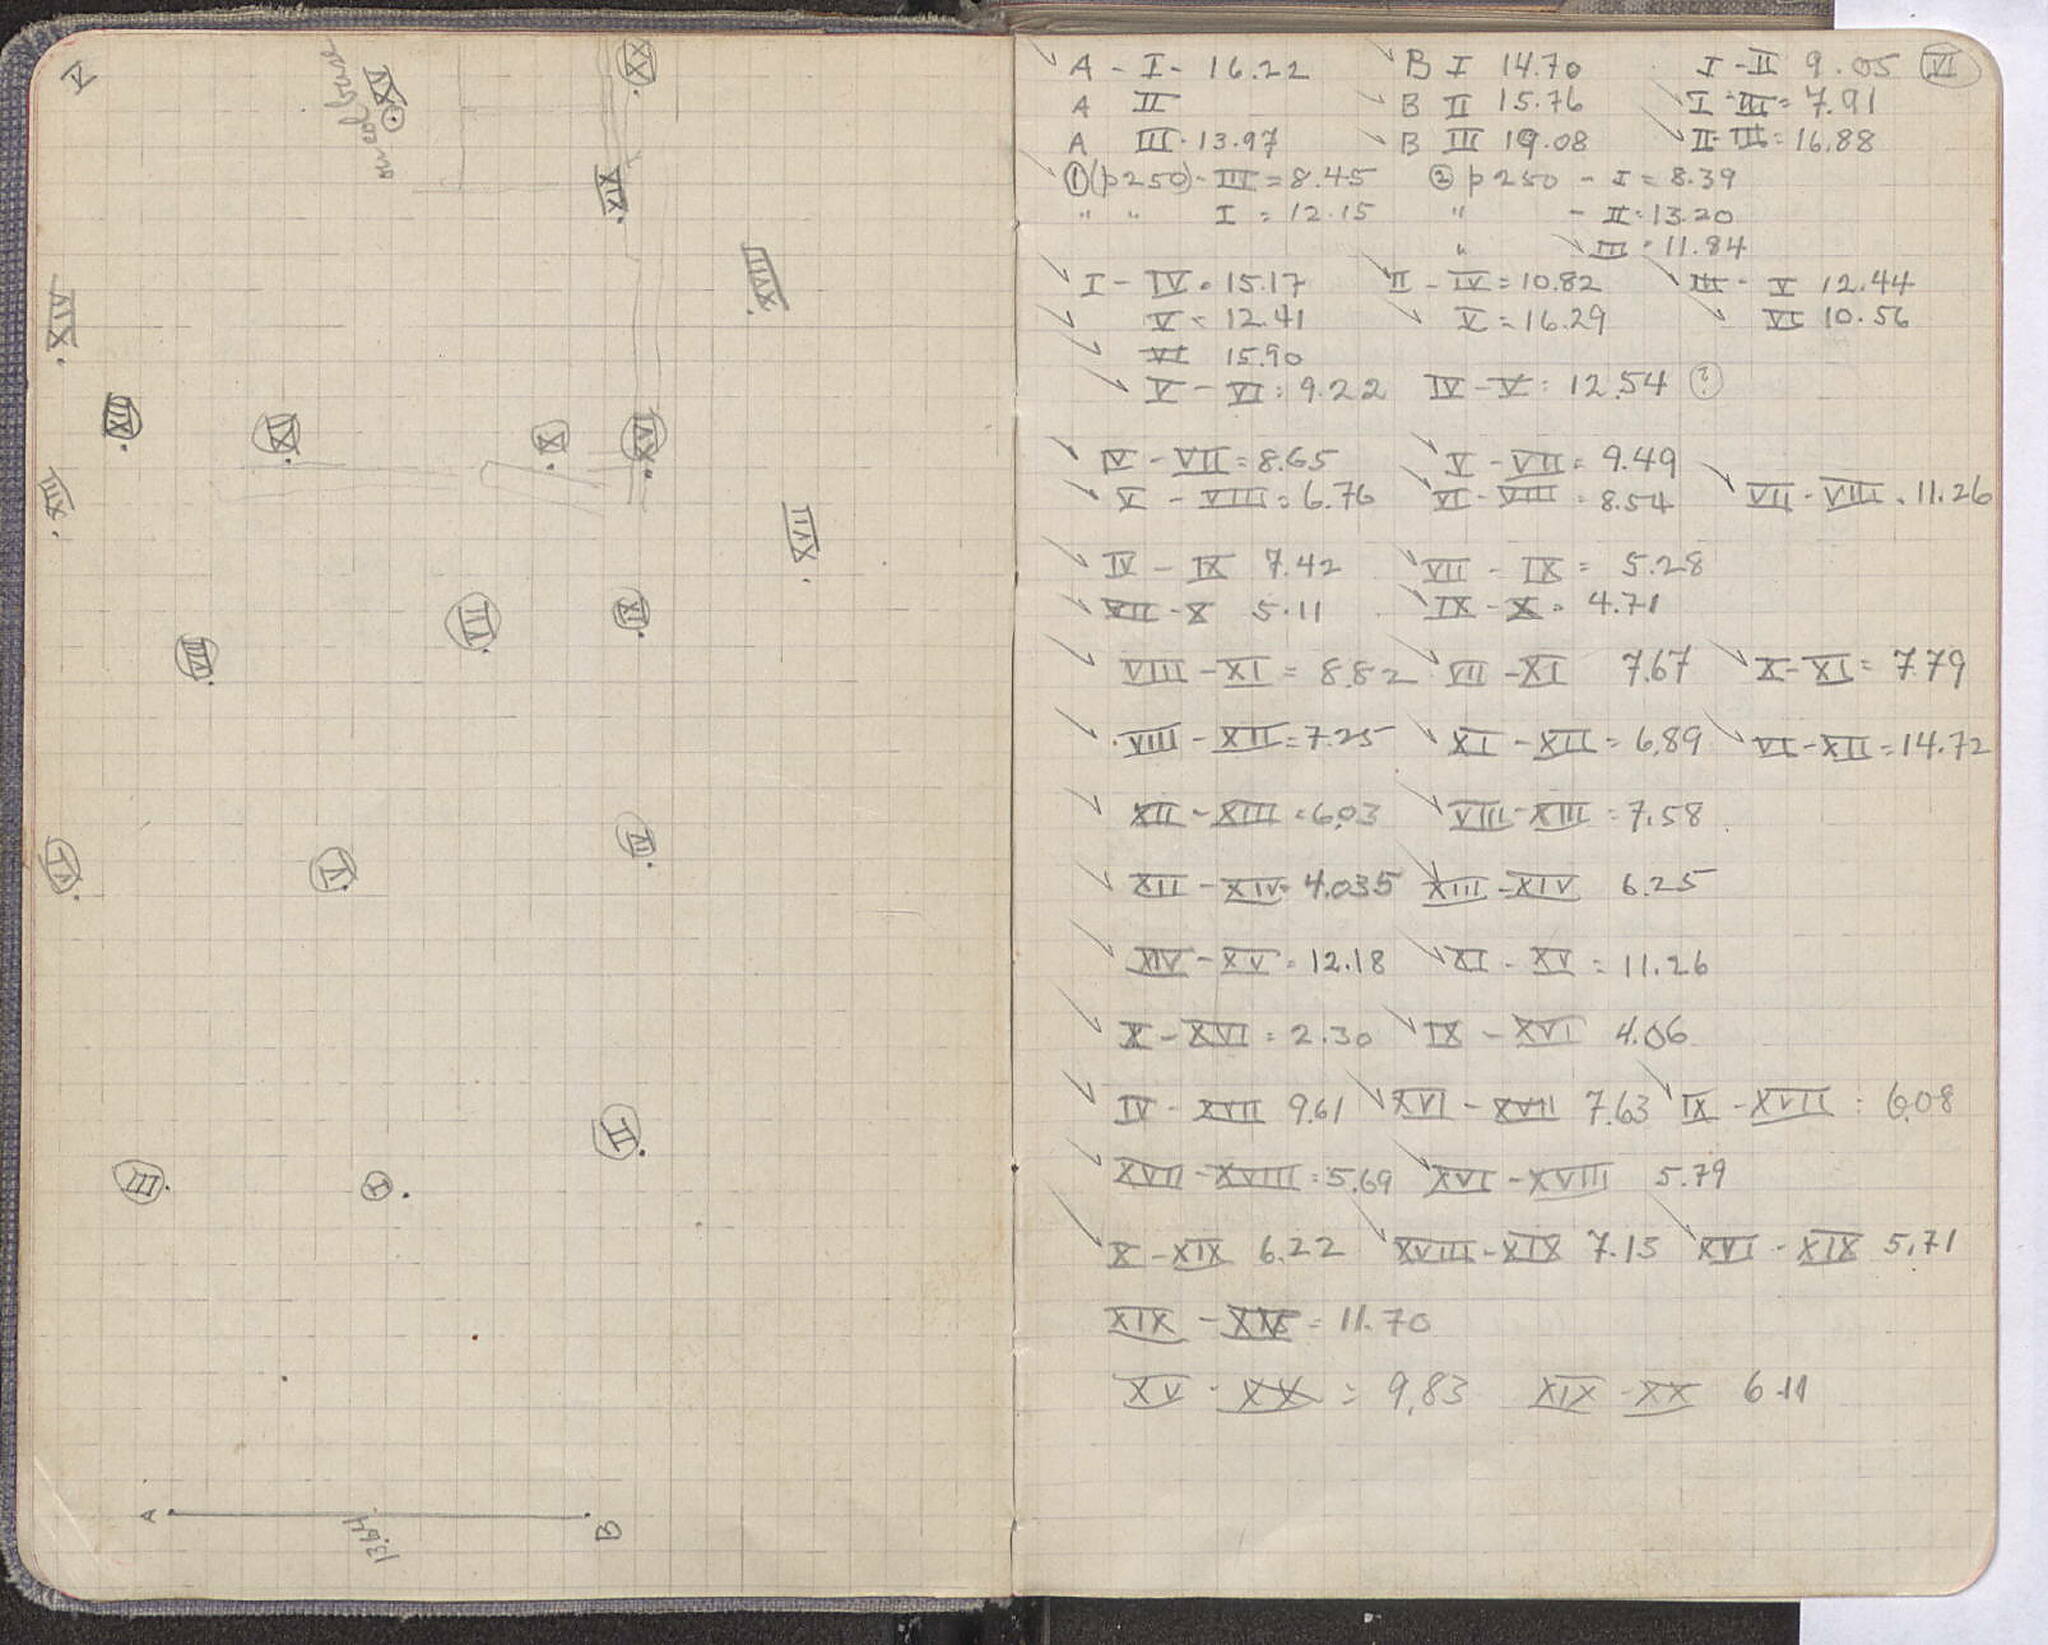 V
on col base
XV
XX
XIX
XVIII
XIV
XII
IX
X
XVI
XIII
XVII
VIII
VII
XI
VI
V
II
III
I
A
13.64
B
A - I - 16.22 B I 14.70 I - II 9.05 VI
A II B II 15.76 I - III = 7.91
A III - 13.97 B III 19.08 II - III = 16.88
① (p 250) - III = 8.45 ② p 250 - I = 8.39
" " I = 12.15 " - II = 13.20
" III = 11.84
I - IV = 15.17 II - IV = 10.82 III - V 12.44
V = 12.41 V = 16.29 VI 10.56
VI 15.90
V - VI = 9.22 IV - V = 12.54 ?
IV - VII = 8.65 V - VII = 9.49
V - VIII = 6.76 VI - VIII = 8.54 VII - VIII = 11.26
IV - IX 7.42 VII - IX = 5.28
VII - X 5.11 IX - X = 4.71
VIII - XI = 8.82 VII - XI 7.67 X - XI = 7.79
VIII - XII = 7.25 XI - XII = 6.89 VI - XII = 14.72
XII - XIII = 6.03 VIII - XIII = 7.58
XII - XIV = 4.035 XIII - XIV 6.25
XIV - XV = 12.18 XI - XV = 11.26
X - XVI = 2.30 IX - XVI 4.06
IV - XVII 9.61 XVI - XVII 7.63 IX - XVII = 6.08
XVII - XVIII = 5.69 XVI - XVIII 5.79
X - XIX 6.22 XVIII - XIX 7.15 XVI - XIX 5.71
XIX - = 11.70
XV - XX = 9.83 XIX - XX 6.11